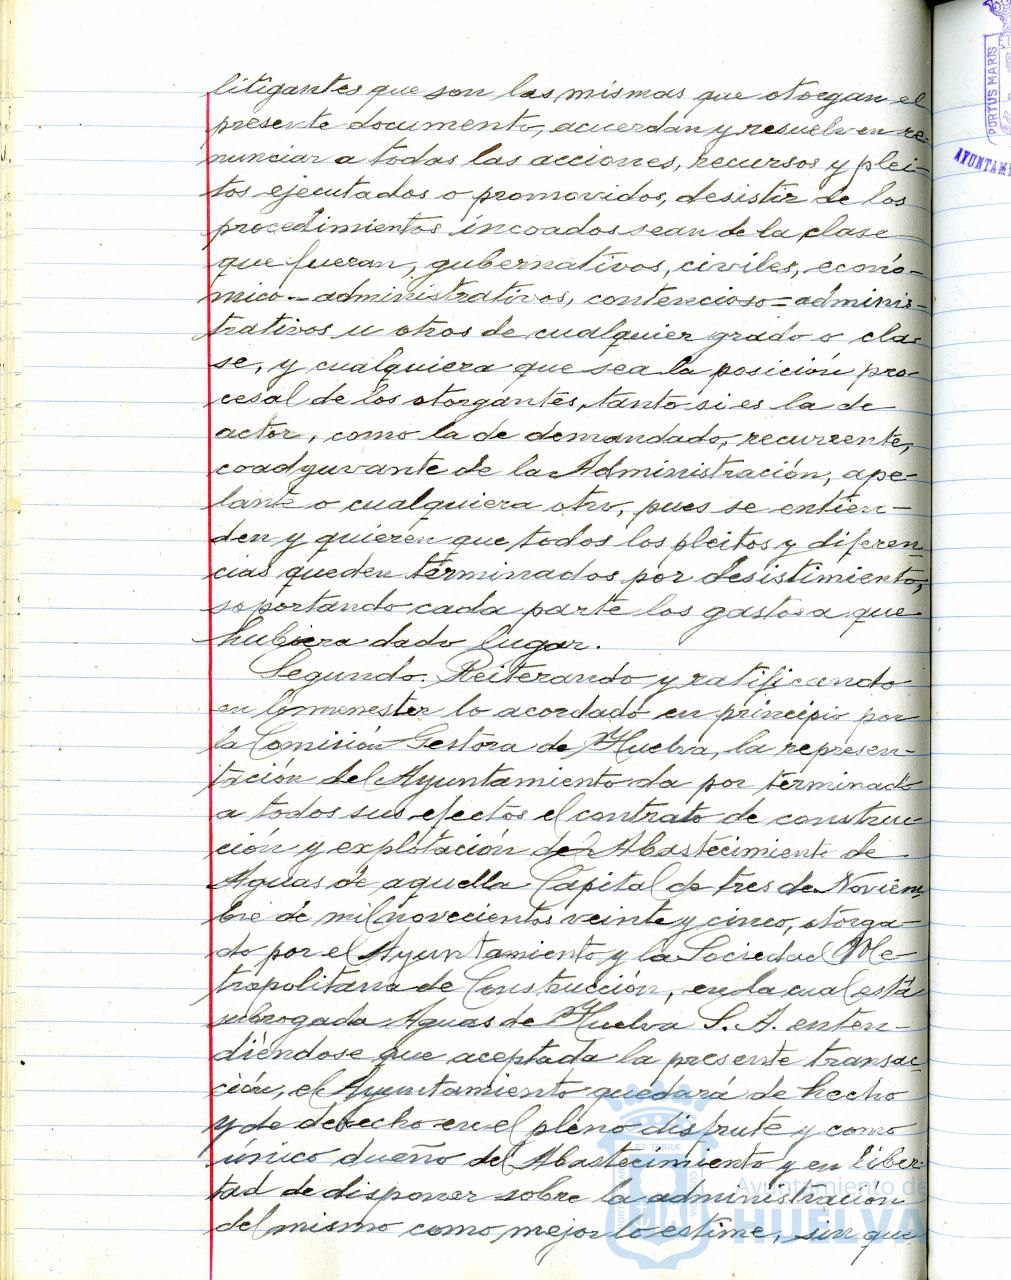 litigantes que son las mismas que otorgan el
presente documento, acuerdan y resuelven re-
nunciar a todas las acciones, recursos y plei-
tos ejecutados o promovidos, desistir de los
procedimientos incoados sean de la clase
que fueran, gubernativos, civiles, econó-
mico-administrativos, contencioso=adminis-
trativos u otros de cualquier grado o cla-
se, y cualquiera que sea la posición pro-
cesal de los otorgantes, tanto si es la de
actor, como la de demandado, recurrente,
coadyuvante de la Administración, ape-
lante o cualquiera otro, pues se entien-
den y quieren que todos los pleitos y diferen-
cias queden terminados por desistimiento,
soportando cada parte los gastos a que
hubiera dado lugar.
Segundo. Reiterando y ratificando
en lo menester lo acordado en principio por
la Comisión Gestora de Huelva, la represen-
tación del Ayuntamiento da por terminado
a todos sus efectos el contrato de construc-
ción y explotación del Abastecimiento de
Aguas de aquella Capital de tres de Noviem-
bre de mil novecientos veinte y cinco, otorga-
do por el Ayuntamiento y la Sociedad Me-
tropolitana de Construcción, en la cual está
subrogada Aguas de Huelva S. A. enten-
diéndose que aceptada la presente transac-
ción, el Ayuntamiento quedará de hecho
y de derecho en el pleno disfrute y como
único dueño del Abastecimiento y en liber-
tad de disponer sobre la administración
del mismo como mejor lo estime, sin que
PORTUS MARIS
AYUNTAMI
Ayuntamiento de
HUELVA